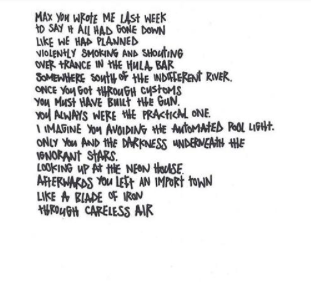 MAX YOU WROTE ME LAST WEEK
TO SAY IT ALL HAD GONE DOWN
LIKE WE HAD PLANNED
VIOLENTLY SMOKING AND SHOUTING
OVER TRANCE IN THE HULA BAR
SOMEWHERE SOUTH OF THE INDIFFERENT RIVER.
ONCE YOU GOT THROUGH CUSTOMS
YOU MUST HAVE BUILT THE GUN.
YOU ALWAYS WERE THE PRACTICAL ONE.
I IMAGINE YOU AVOIDING THE AUTOMATED POOL LIGHT.
ONLY YOU AND THE DARKNESS UNDERNEATH THE
IGNORANT STARS.
LOOKING UP AT THE NEON HOUSE.
AFTERWARDS YOU LEFT AN IMPORT TOWN
LIKE A BLADE OF IRON
THROUGH CARELESS AIR